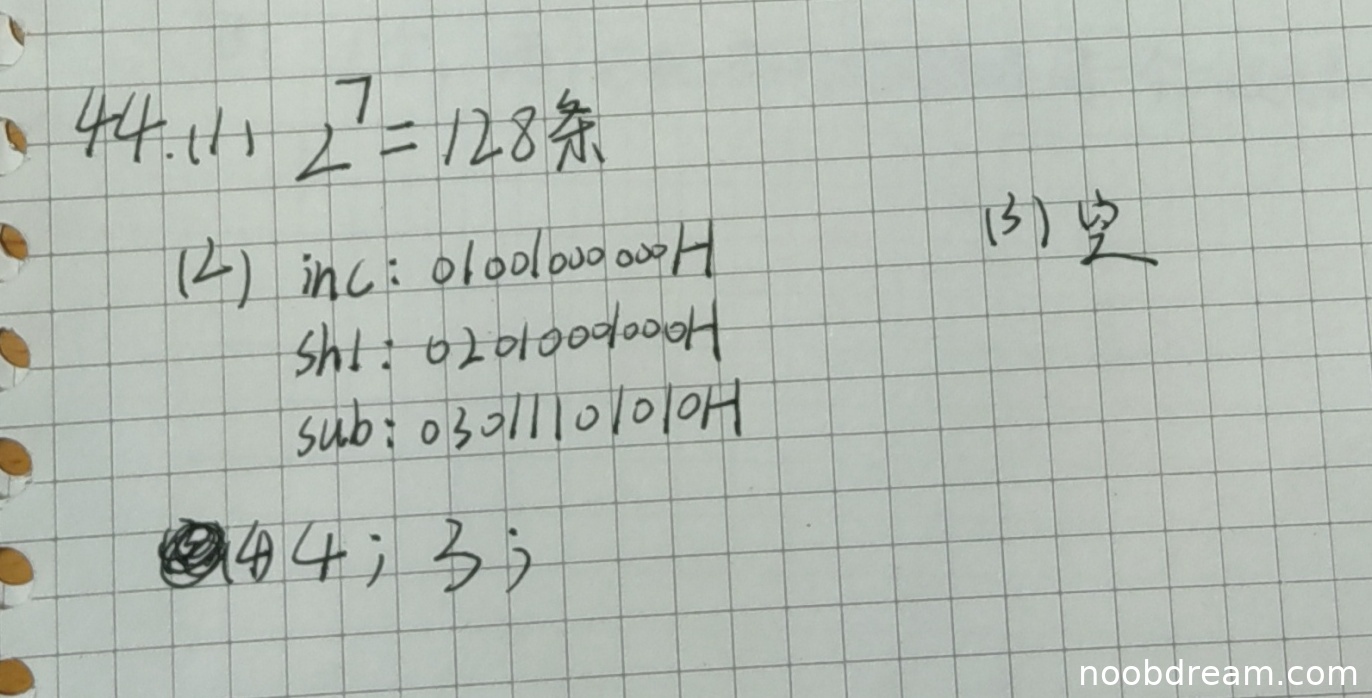 44.(1) 2^7=128条
(2) inc: 01001000000H
(3) 空
shl: 02010001000H
sub: 03011101010H
(4) 4; 3;
noobdream.com